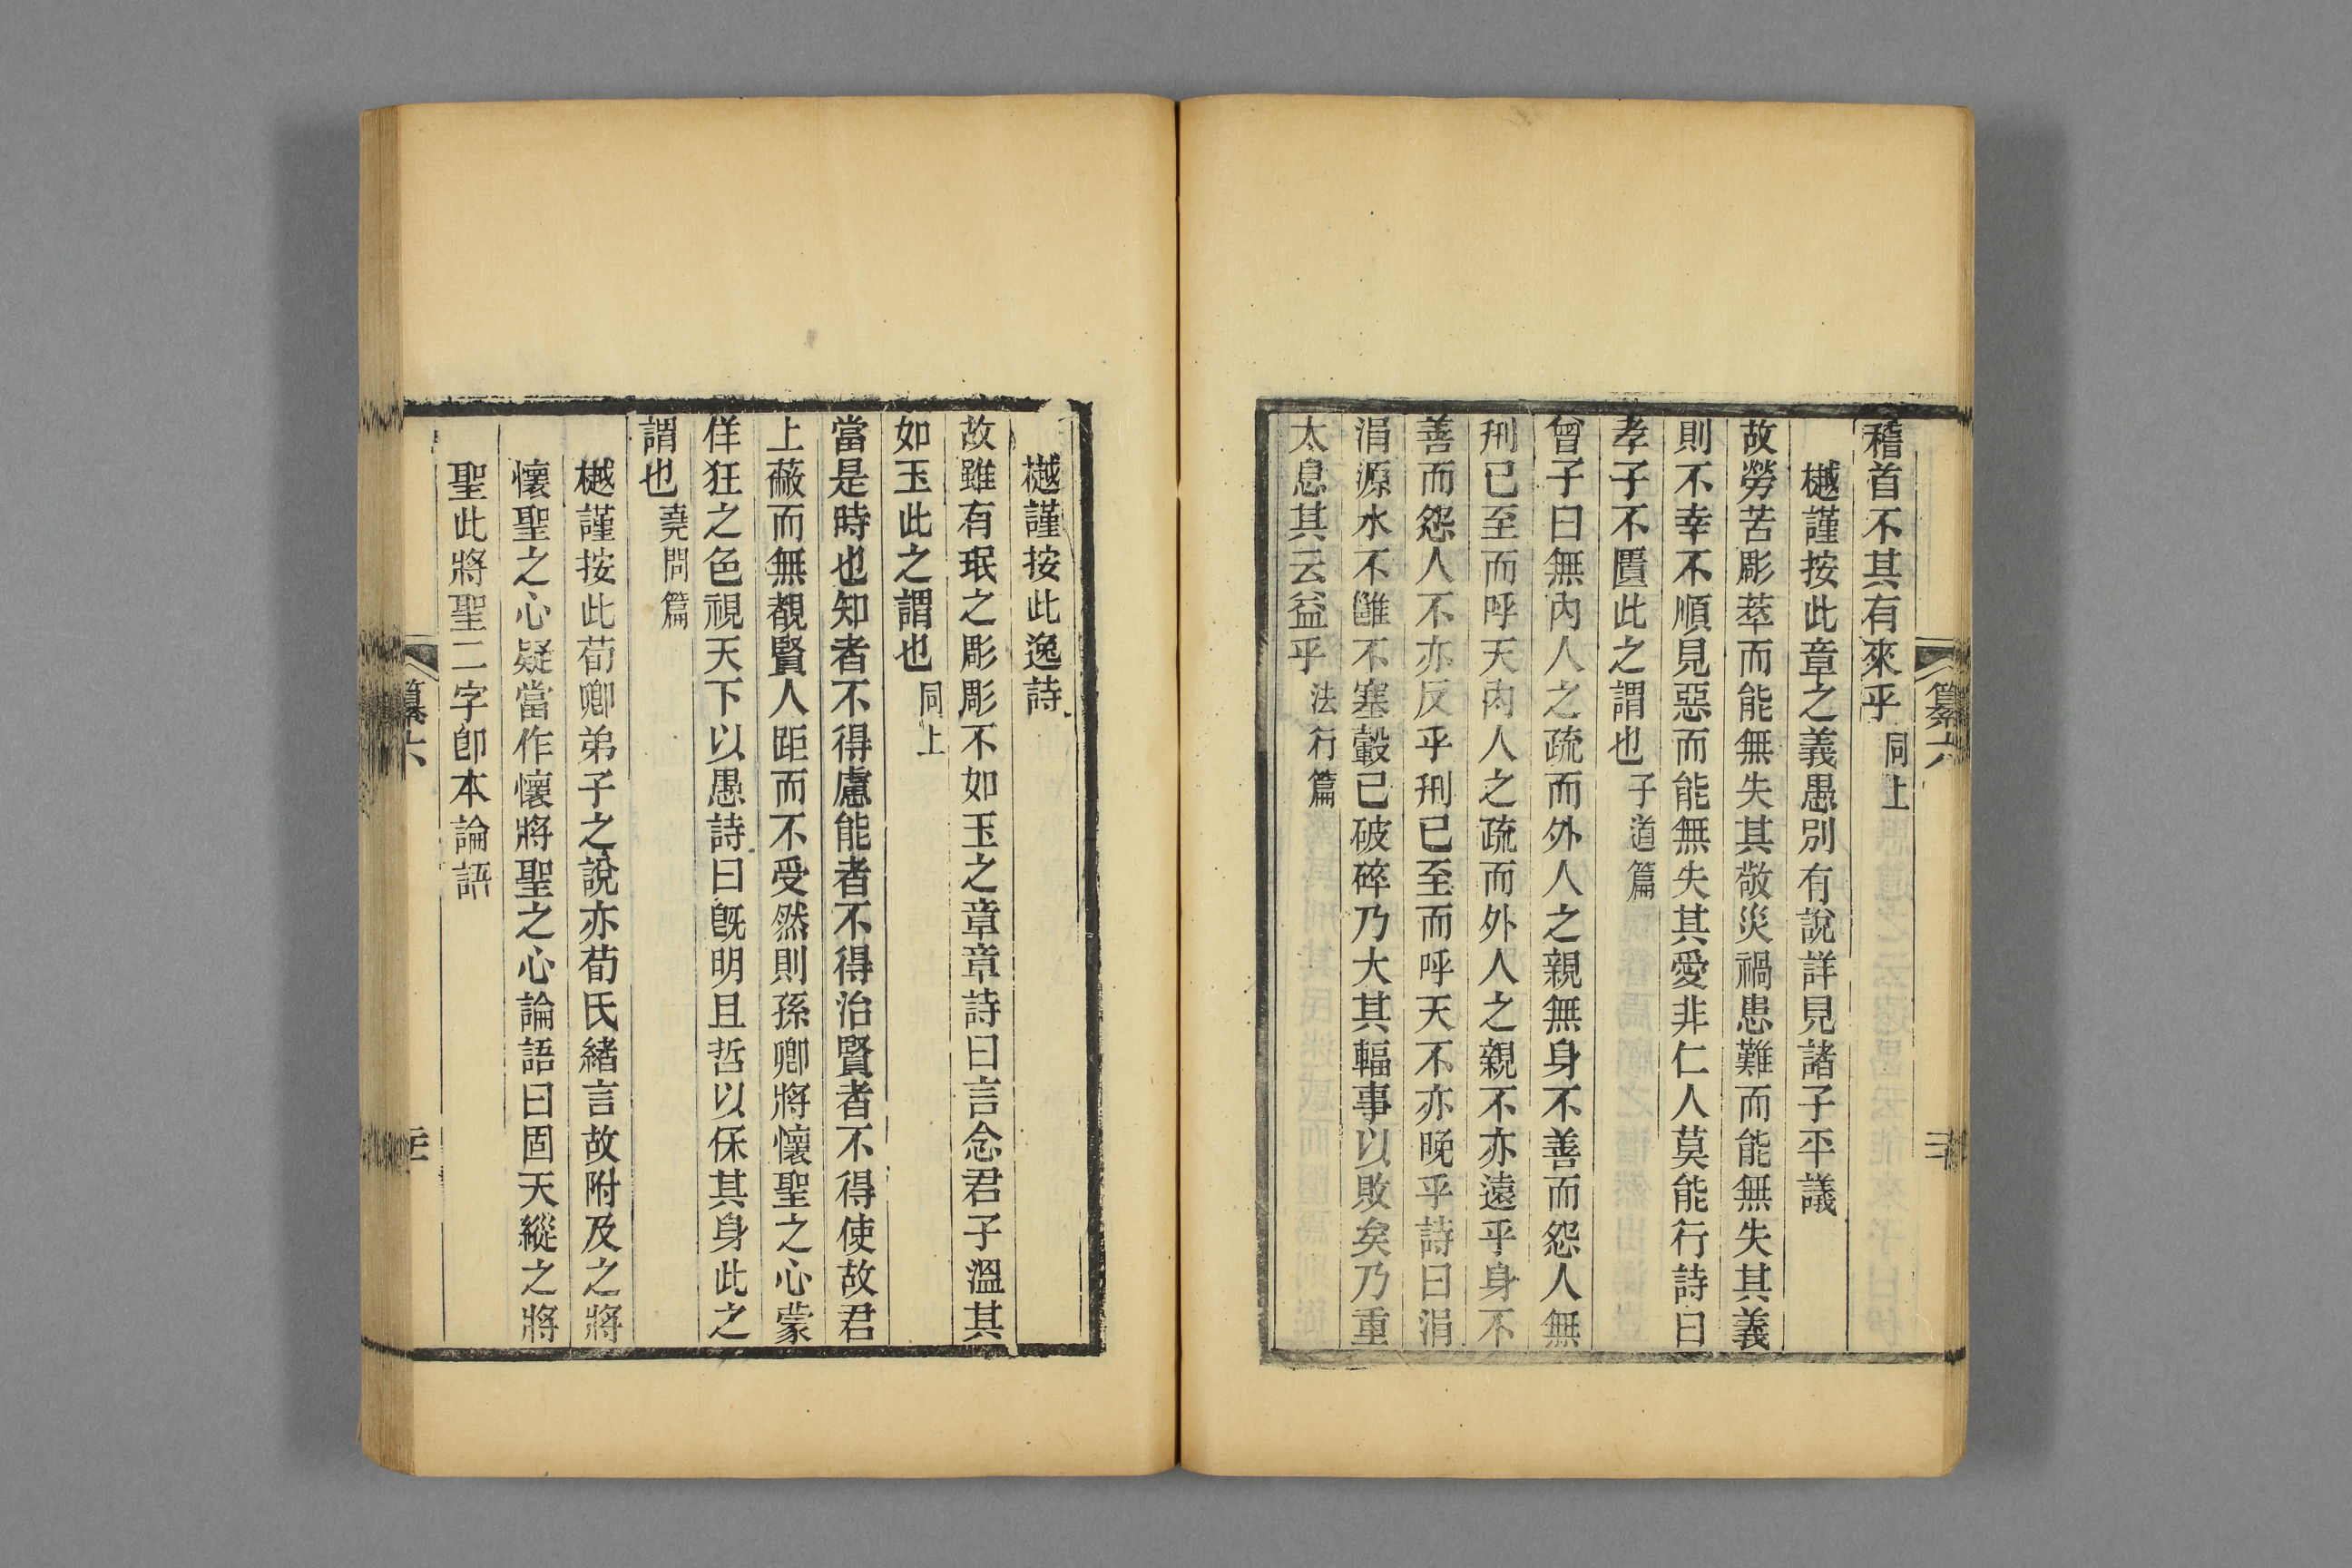 稽首不其有來乎同上
樾謹按此章之義愚別有說詳見諸子平議
故勞苦彫萃而能無失其敬災禍患難而能無失其義
則不幸不順見惡而能無失其愛非仁人莫能行詩曰
孝子不匱此之謂也子道篇
曾子曰無內人之疏而外人之親無身不善而怨人無
刑已至而呼天內人之疏而外人之親不亦遠乎身不
善而怨人不亦反乎刑已至而呼天不亦晚乎詩曰涓
涓源水不雝不塞轂已破碎乃大其輻事以敗矣乃重
太息其云益乎法行篇
樾謹按此逸詩
故雖有珉之彫彫不如玉之章章詩曰言念君子溫其
如玉此之謂也同上
當是時也知者不得慮能者不得治賢者不得使故君
上蔽而無覩賢人距而不受然則孫卿將懷聖之心蒙
佯狂之色視天下以愚詩曰旣明且哲以保其身此之
謂也堯問篇
樾謹按此荀卿弟子之說亦荀氏緒言故附及之將
懷聖之心疑當作懷將聖之心論語曰固天縱之將
聖此將聖二字卽本論語
纂六